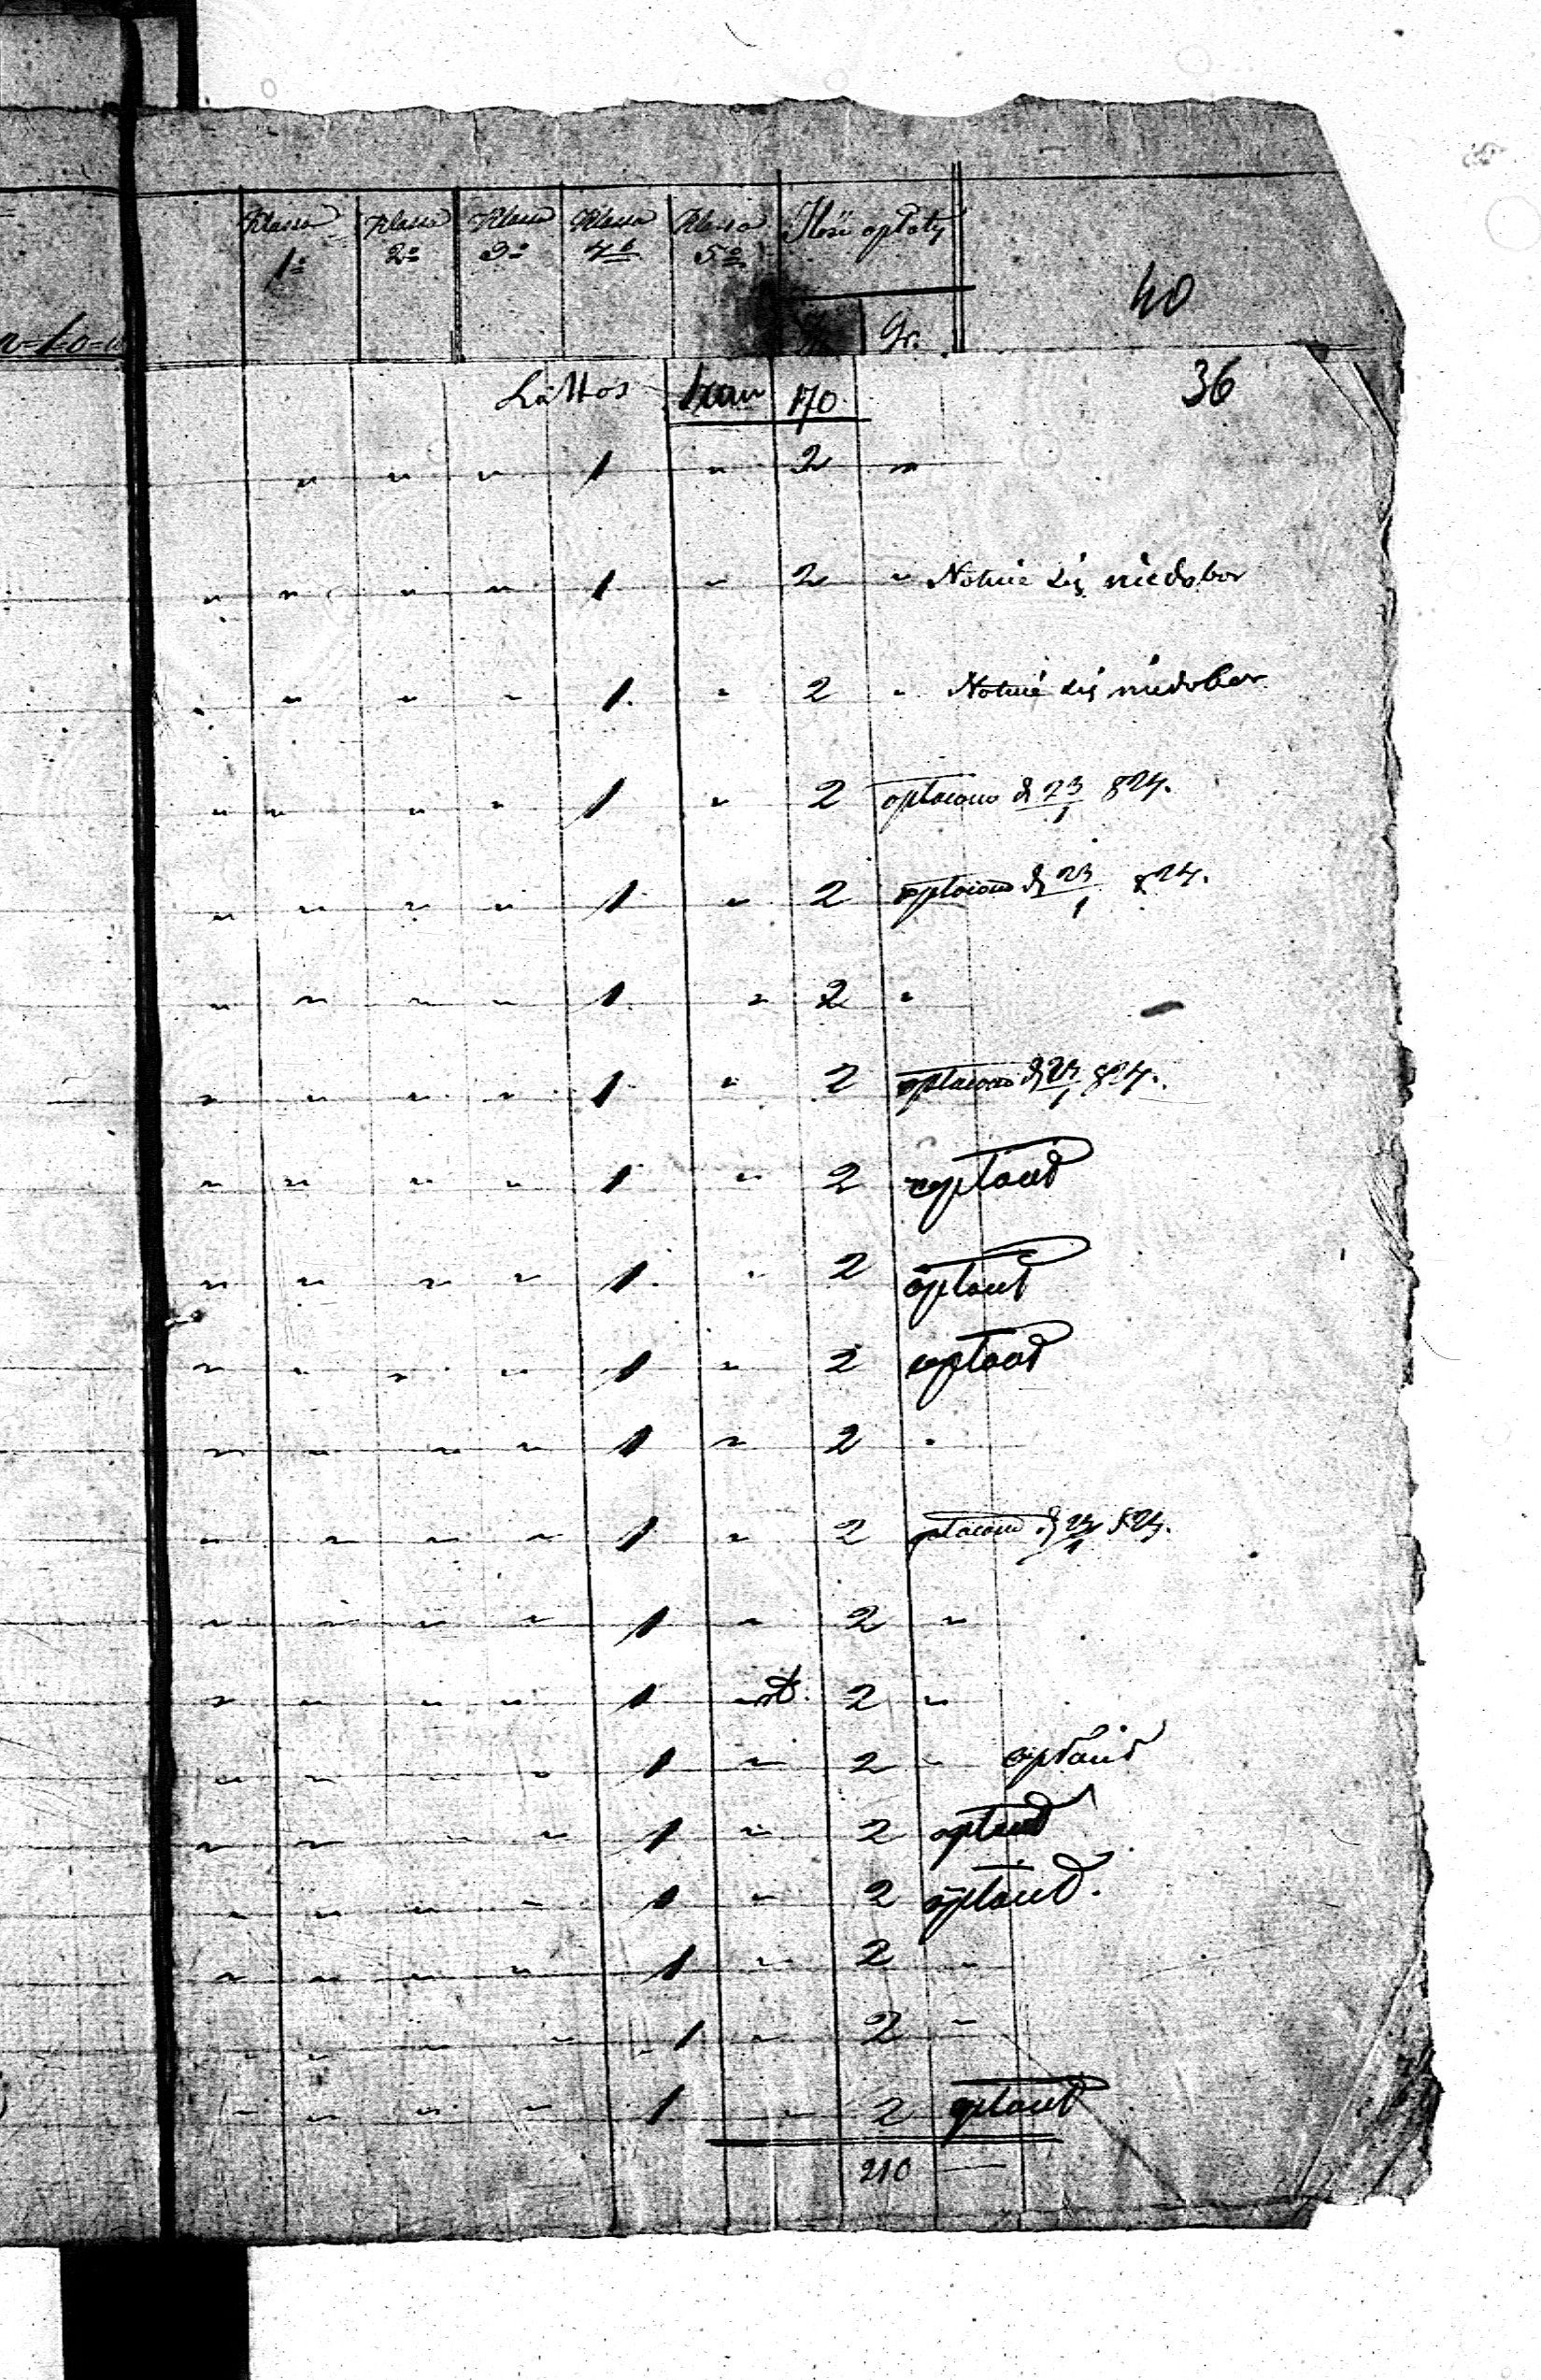 Klassa 1a Klassa 2a Klassa 3a Klassa 4ta Klassa 5a Ilość opłaty
40
Gr.
36
Lattos 170
" " " 1 " 2 "
" " " " 1 " 2 " Notuie się niedobor
" " " " 1 " 2 " Notuie się niedobor
" " " " 1 " 2 opłacono d 23/1 824.
" " " " 1 " 2 opłacono d 23/1 824.
" " " " 1 " 2 "
" " " " 1 " 2 opłacono d 23/1 824.
" " " " 1 " 2 opłacił
" " " " 1 " 2 opłacił
" " " " 1 " 2 opłacił
" " " " 1 " 2 "
" " " " 1 " 2 płacono d 23/1 824.
" " " " 1 " 2 "
" " " " 1 2 "
" " " " 1 " 2 " opłacił
" " " " 1 " 2 opłacił
" " " " 1 " 2 opłacił.
" " " " 1 " 2 "
" " " " 1 " 2 "
" " " " 1 " 2 opłacił
210 —